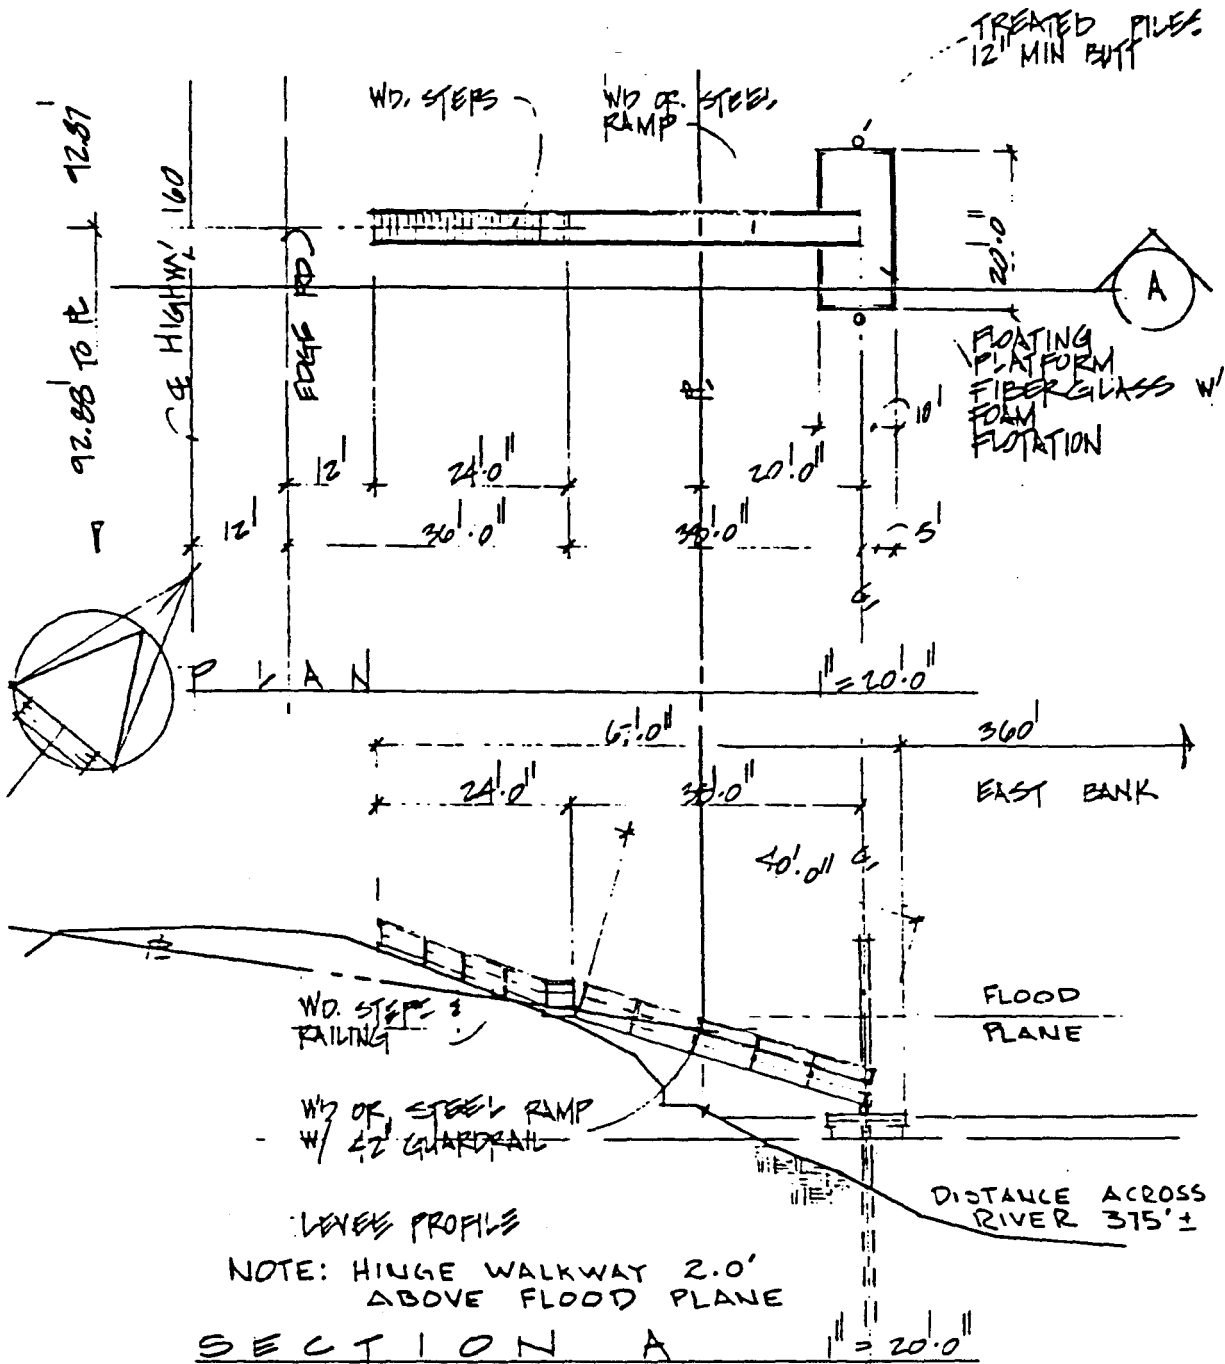 TREATED PILES
12" MIN BUTT
WD. STEPS
WD OR STEEL
RAMP
92.87'
92.88' TO
HIGHWY 160
EDGE RD.
20'.0"
A
FLOATING
PLATFORM
FIBERGLASS W/
FOAM
FLOTATION
10'
12'
24'.0"
20'.0"
12'
36'.0"
5'
PLAN
1" = 20'.0"
360'
24'.0"
EAST BANK
40'.0"
WD. STEPS &
RAILING
FLOOD
PLANE
WD OR STEEL RAMP
W/ 42" GUARDRAIL
DISTANCE ACROSS
RIVER 375'±
LEVEE PROFILE
NOTE: HINGE WALKWAY 2.0'
ABOVE FLOOD PLANE
SECTION A
1" = 20'.0"